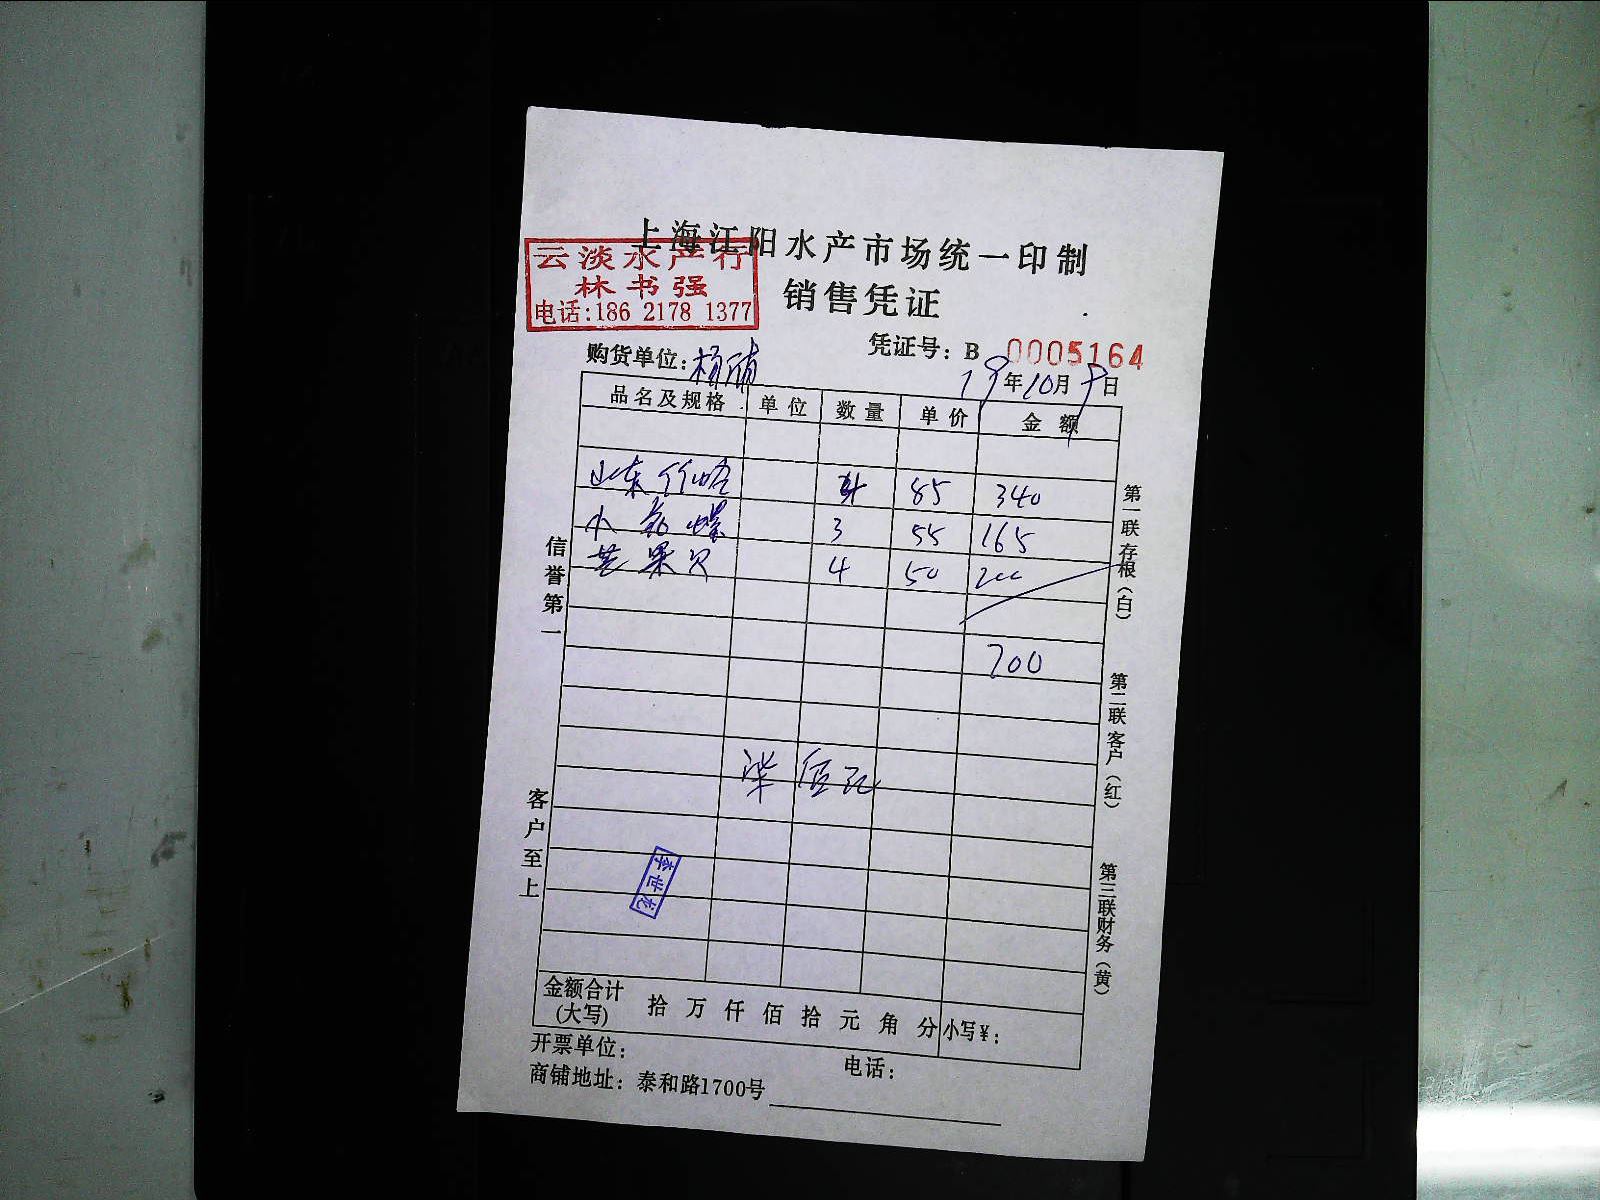 上海江阳水产市场统一印制
云淡水产行
林书强
电话:186 2178 1377
销售凭证
凭证号：B 0005164
购货单位：杨浦
19年10月9日
品名及规格 单位 数量 单价 金额
山东竹蛤 4 85 340
小花螺 3 55 165
芒果贝 4 50 200
700
李世龙
金额合计(大写) 拾 万 仟 佰 拾 元 角 分 小写¥：
开票单位： 电话：
商铺地址：泰和路1700号
信誉第一
客户至上
第一联存根（白）
第二联客户（红）
第三联财务（黄）